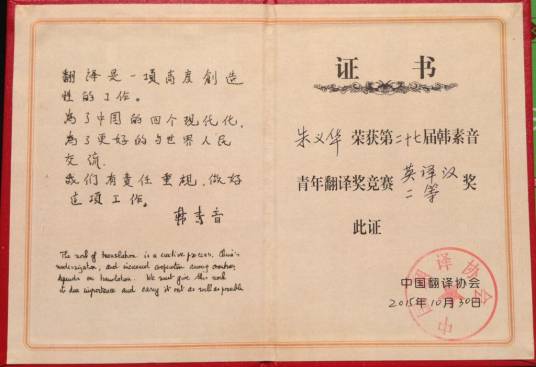 翻译是一項高度創造
性的工作。
為了中国的四个现代化,
為了更好的与世界人民
交流,
我们有責任重視、做好
这項工作。
韩素音
The work of translation is a creative process, China's
modernization, and increased cooperation among countries
depends on translation. We must give this work
its due importance and carry it out as well as possible
证书
朱义华 荣获第二十七届韩素音
青年翻译奖竞赛 英译汉
二等 奖
此证
中国翻译协会
2015年10月30日
中国翻译协会